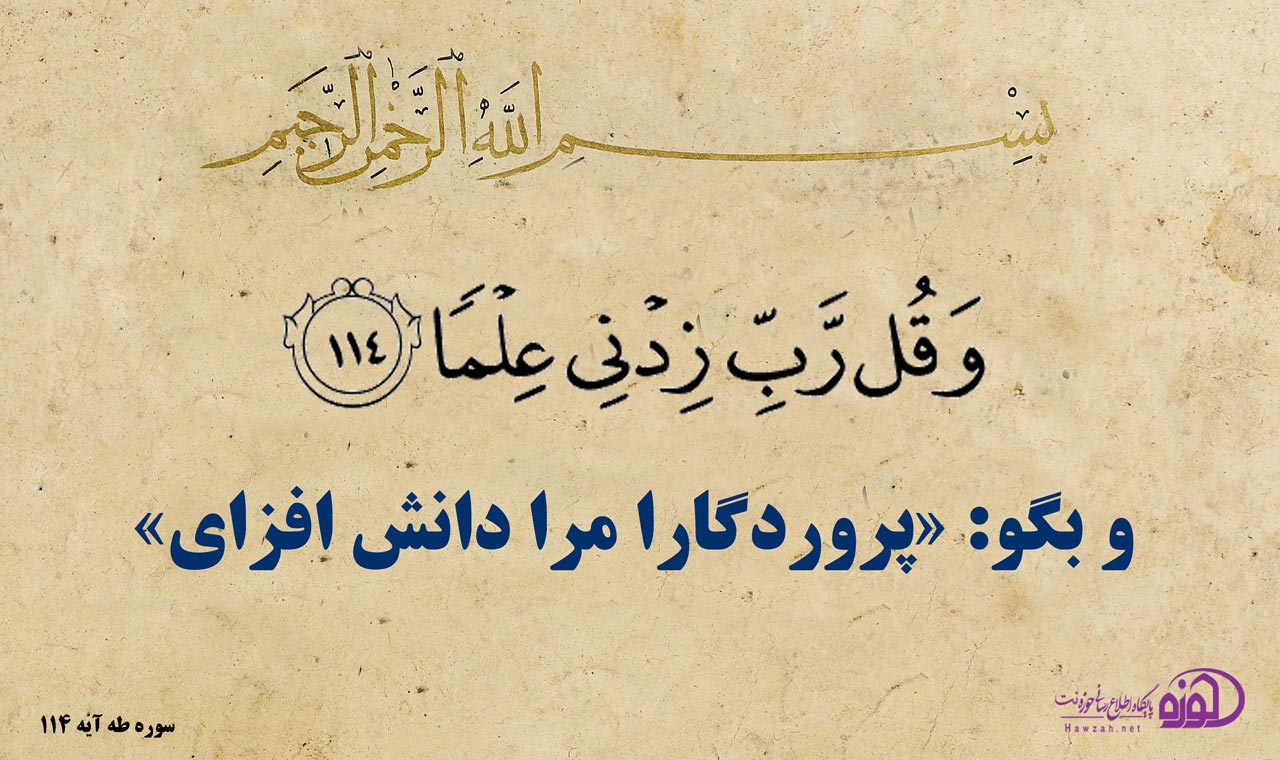 بِسْمِ اللَّهِ الرَّحْمَٰنِ الرَّحِيمِ
وَ قُل رَّبِّ زِدْنِي عِلْمًا ١١٤
و بگو: «پروردگارا مرا دانش افزای»
سوره طه آیه ۱۱۴
حوزه
پایگاه اطلاع رسانی حوزه نت
Hawzah.net